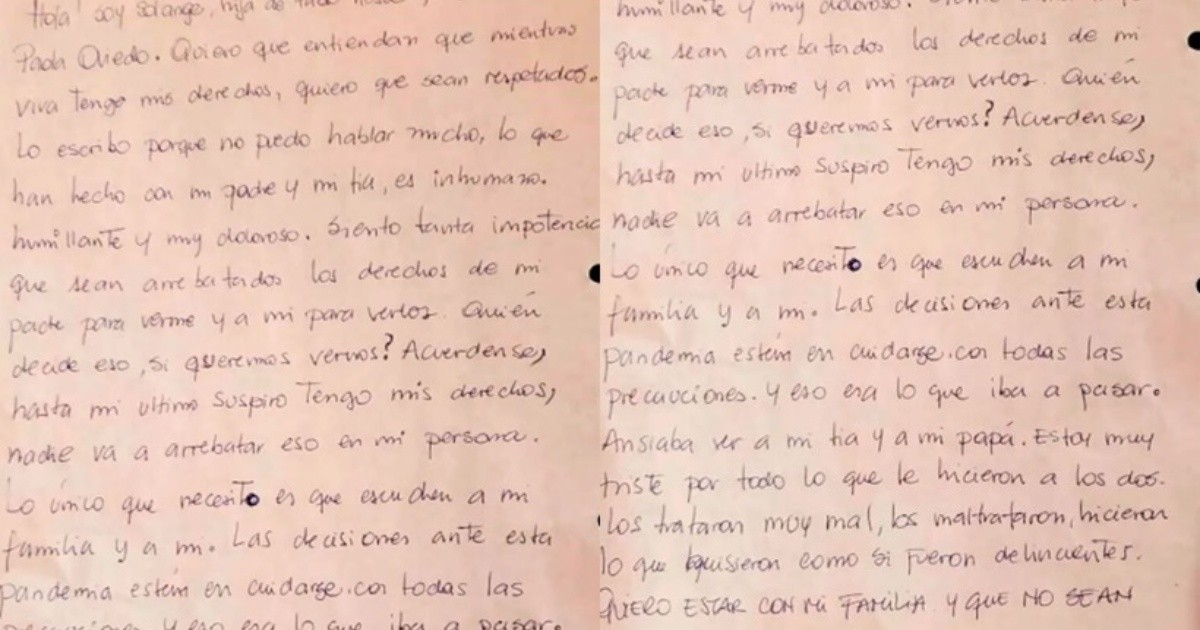 Hola! soy Solange, hija de
Paola Oviedo. Quiero que entiendan que mientras
viva Tengo mis derechos, quiero que sean respetados.
Lo escribo porque no puedo hablar mucho, lo que
han hecho con mi padre y mi tia, es inhumano.
humillante y muy doloroso. Siento tanta impotencia
que sean arrebatados los derechos de mi
padre para verme y a mi para verlos. Quién
decide eso, si queremos vernos? Acuerdense,
hasta mi ultimo suspiro Tengo mis derechos,
nadie va a arrebatar eso en mi persona.
Lo único que necesito es que escuchen a mi
familia y a mi. Las decisiones ante esta
pandemia estém en cuidarse.con todas las
precauciones. y eso era lo que iba a pasar.
humillante y muy doloroso.
que sean arrebatados los derechos de mi
padre para verme y a mi para verlos. Quién
decide eso, si queremos vernos? Acuerdense,
hasta mi ultimo suspiro Tengo mis derechos,
nadie va a arrebatar eso en mi persona.
Lo único que necesito es que escuchen a mi
familia y a mi. Las decisiones ante esta
pandemia estém en cuidarse.con todas las
precauciones. y eso era lo que iba a pasar.
Ansiaba ver a mi tia y a mi papá. Estoy muy
triste por todo lo que le hicieron a los dos.
los trataron muy mal, los maltrataron, hicieron
lo que quisieron como si fueron delincuentes.
QUIERO ESTAR CON MI FAMILIA Y QUE NO SEAN